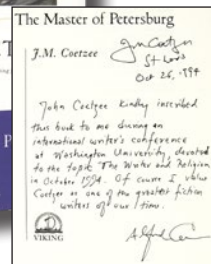 The Master of Petersburg
J.M. Coetzee
St. Louis
Oct 26, 1994
John Coetzee kindly inscribed
this book to me during an
international writer's conference
at Washington University, devoted
to the topic "The Writer and Religion"
in October 1994. Of course I value
Coetzee as one of the greatest fiction
writers of our time.
VIKING